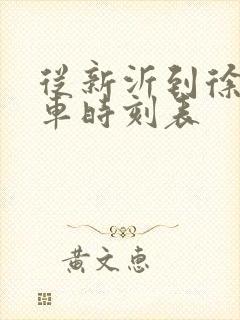 從新沂到徐
車時刻表
黃文惠